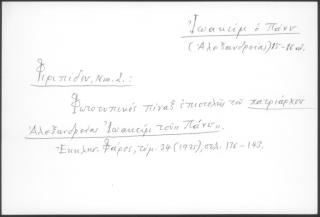 Ἰωακεὶμ ὁ Πάνυ
(Ἀλεξανδρείας) 15-16 αἰ.
Φιριπίδου, Νικ. Σ.:
Φωτοτυπικὸς πίναξ ἐπιστολῆς τοῦ πατριάρχου
Ἀλεξανδρείας Ἰωακεὶμ τοῦ "Πάνυ".
Ἐκκλησ. Φάρος, τόμ. 34 (1935), σελ. 136-143.